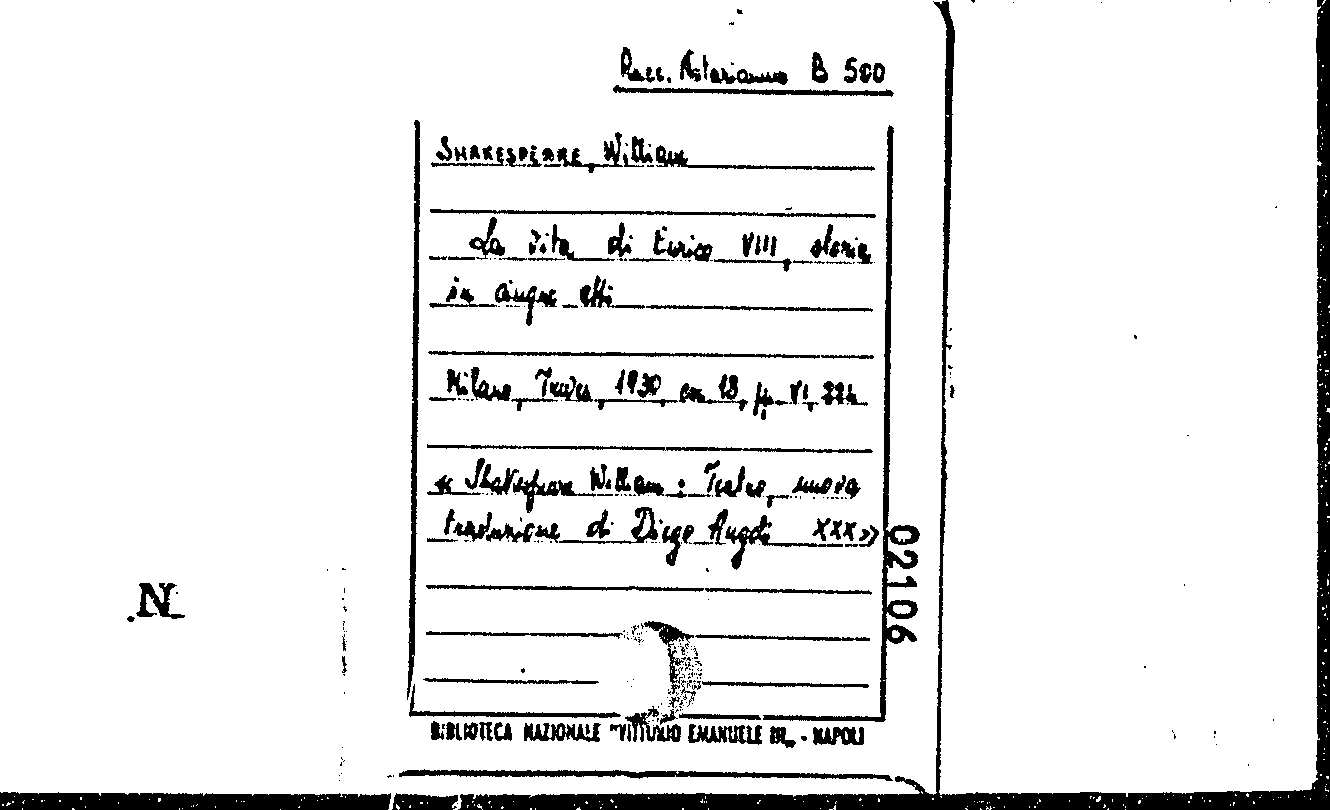 Racc. Astarianno B 500
SHAKESPEARE, William
La vita di Enrico VIII, storia
in cinque atti
Milano, Treves, 1930, cm. 18, pp. VI, 224
« Shakespeare William : Teatro, nuova
traduzione di Diego Angeli XXX »
02106
N
BIBLIOTECA NAZIONALE "VITTORIO EMANUELE III„ - NAPOLI